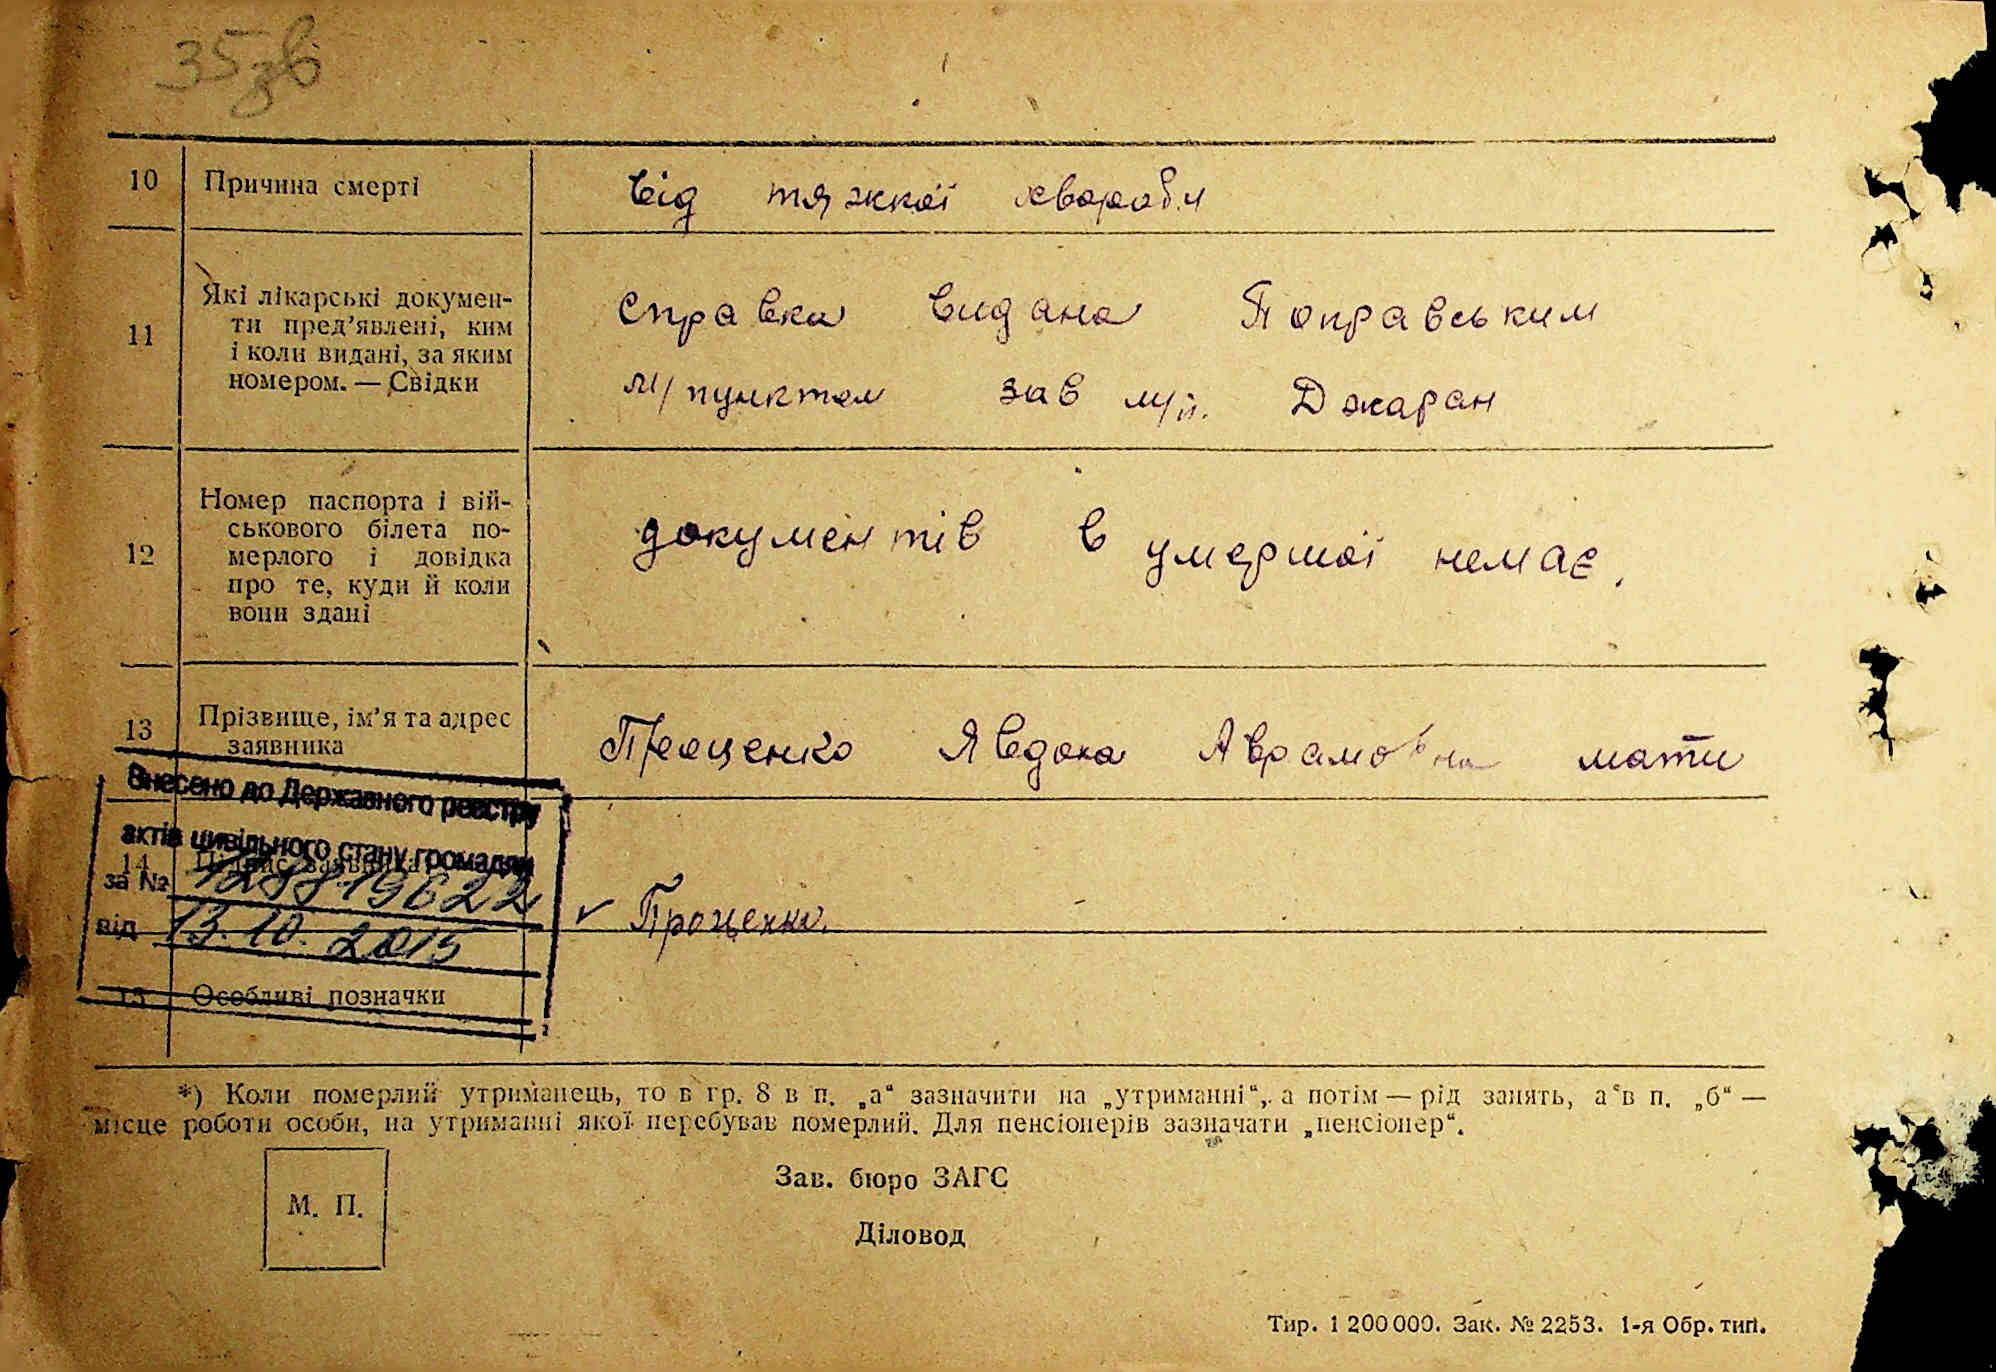 35зв
10 Причина смерті від тяжкої хвороби
11 Які лікарські докумен-
ти пред'явлені, ким
і коли видані, за яким
номером. — Свідки
справка видана Поправським
м/пунктом зав м/п. Джаран
12 Номер паспорта і вій-
ськового білета по-
мерлого і довідка
про те, куди й коли
вони здані
документів в умершої немає.
13 Прізвище, ім'я та адрес
заявника
Проценко Явдоха Аврамовна мати
Внесено до Державного реєстру
актів цивільного стану громадян
14 Підпис заявника
за №
від 13.10.2015
Проценко.
15 Особливі позначки
*) Коли померлий утриманець, то в гр. 8 в п. „а“ зазначити на „утриманні“, а потім — рід занять, а в п. „б“ —
місце роботи особи, на утриманні якої перебував померлий. Для пенсіонерів зазначати „пенсіонер“.
М. П.
Зав. бюро ЗАГС
Діловод
Тир. 1 200 000. Зак. № 2253. 1-я Обр. тип.